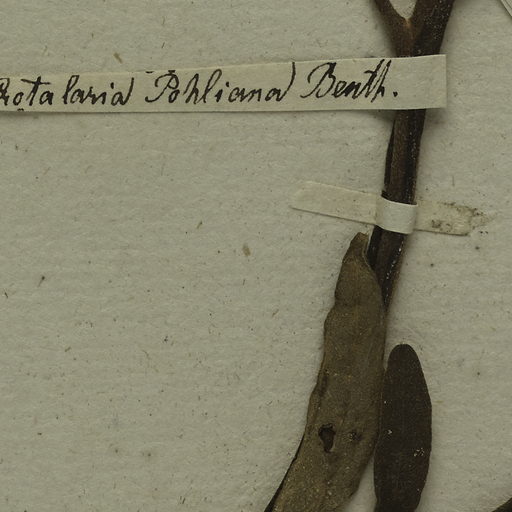 Crotalaria Pohliana Benth.